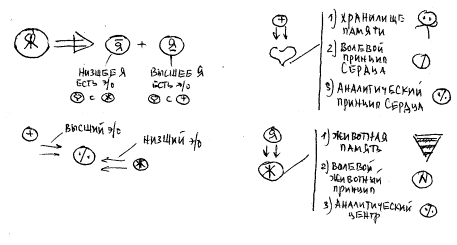 Ж ⇒ Я + Я
НИЗШЕЕ Я
ЕСТЬ Э/О
С Ж
ВЫСШЕЕ Я
ЕСТЬ Э/О
С +
+ ВЫСШИЙ Э/О
%
НИЗШИЙ Э/О
Ж
+
1) ХРАНИЛИЩЕ
ПАМЯТИ
2) ВОЛЕВОЙ
ПРИНЦИП
СЕРДЦА
3) АНАЛИТИЧЕСКИЙ
ПРИНЦИП СЕРДЦА %
Я
Ж
1) ЖИВОТНАЯ
ПАМЯТЬ
2) ВОЛЕВОЙ
ЖИВОТНЫЙ
ПРИНЦИП N
3) АНАЛИТИЧЕСКИЙ
ЦЕНТР %